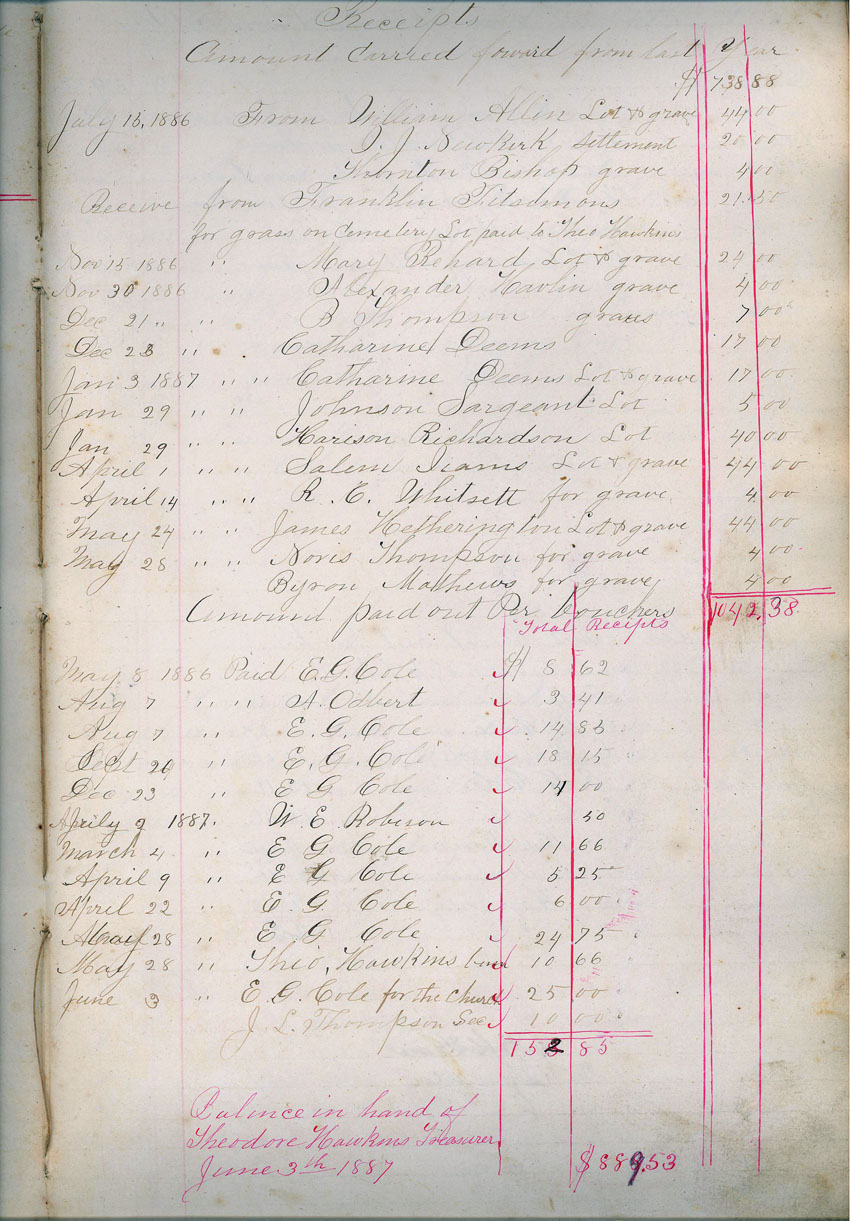 Receipts
Amount Carried foward from last Year
$ 738 88
July 15, 1886 From William Allin Lot & grave 44 00
J. J. Newkirk settlement 20 00
Thornton Bishop grave 4 00
Receive from Franklin Fitsimons 21 50
for grass on Cemetery Lot paid to Theo Hawkins
Nov 15 1886 " Mary Rehard Lot & grave 24 00
Nov 30 1886 " Alexander Havlin grave 4 00
Dec 21 " " B Thompson graves 7 00
Dec 23 " Catharine Deems 17 00
Jan 3 1887 " " Catharine Deems Lot & grave 17 00
Jan 29 " " Johnson Sargeant Lot 5 00
Jan 29 " " Harison Richardson Lot 40 00
April 1 " " Salem Iiams Lot & grave 44 00
April 14 " " R. E. Whitsett for grave 4 00
May 24 " " James Hetherington Lot & grave 44 00
May 28 " " Noris Thompson for grave 4 00
Byron Mathews for grave 4 00
Amount paid out Per Vouchers 1042.38
Total Receipts
May 8 1886 Paid E. G. Cole $ 8 62
Aug 7 " " A. Odbert 3 41
Aug 7 " E. G. Cole 14 83
Sept 20 " E. G. Cole 18 15
Dec 23 " E G Cole 14 00
9 1887. W. E. Robison 50
March 4 " E G Cole 11 66
April 9 " E G Cole 5 25
April 22 " E. G. Cole 6 00
May 28 " E. G. Cole 24 75
May 28 " Theo, Hawkins 10 66
June 3 " E. G. Cole for the Church 25 00
J. L. Thompson Sec 10 00
152 85
Balence in hand of
Theodore Hawkins Treasurer
June 3th 1887 $889.53